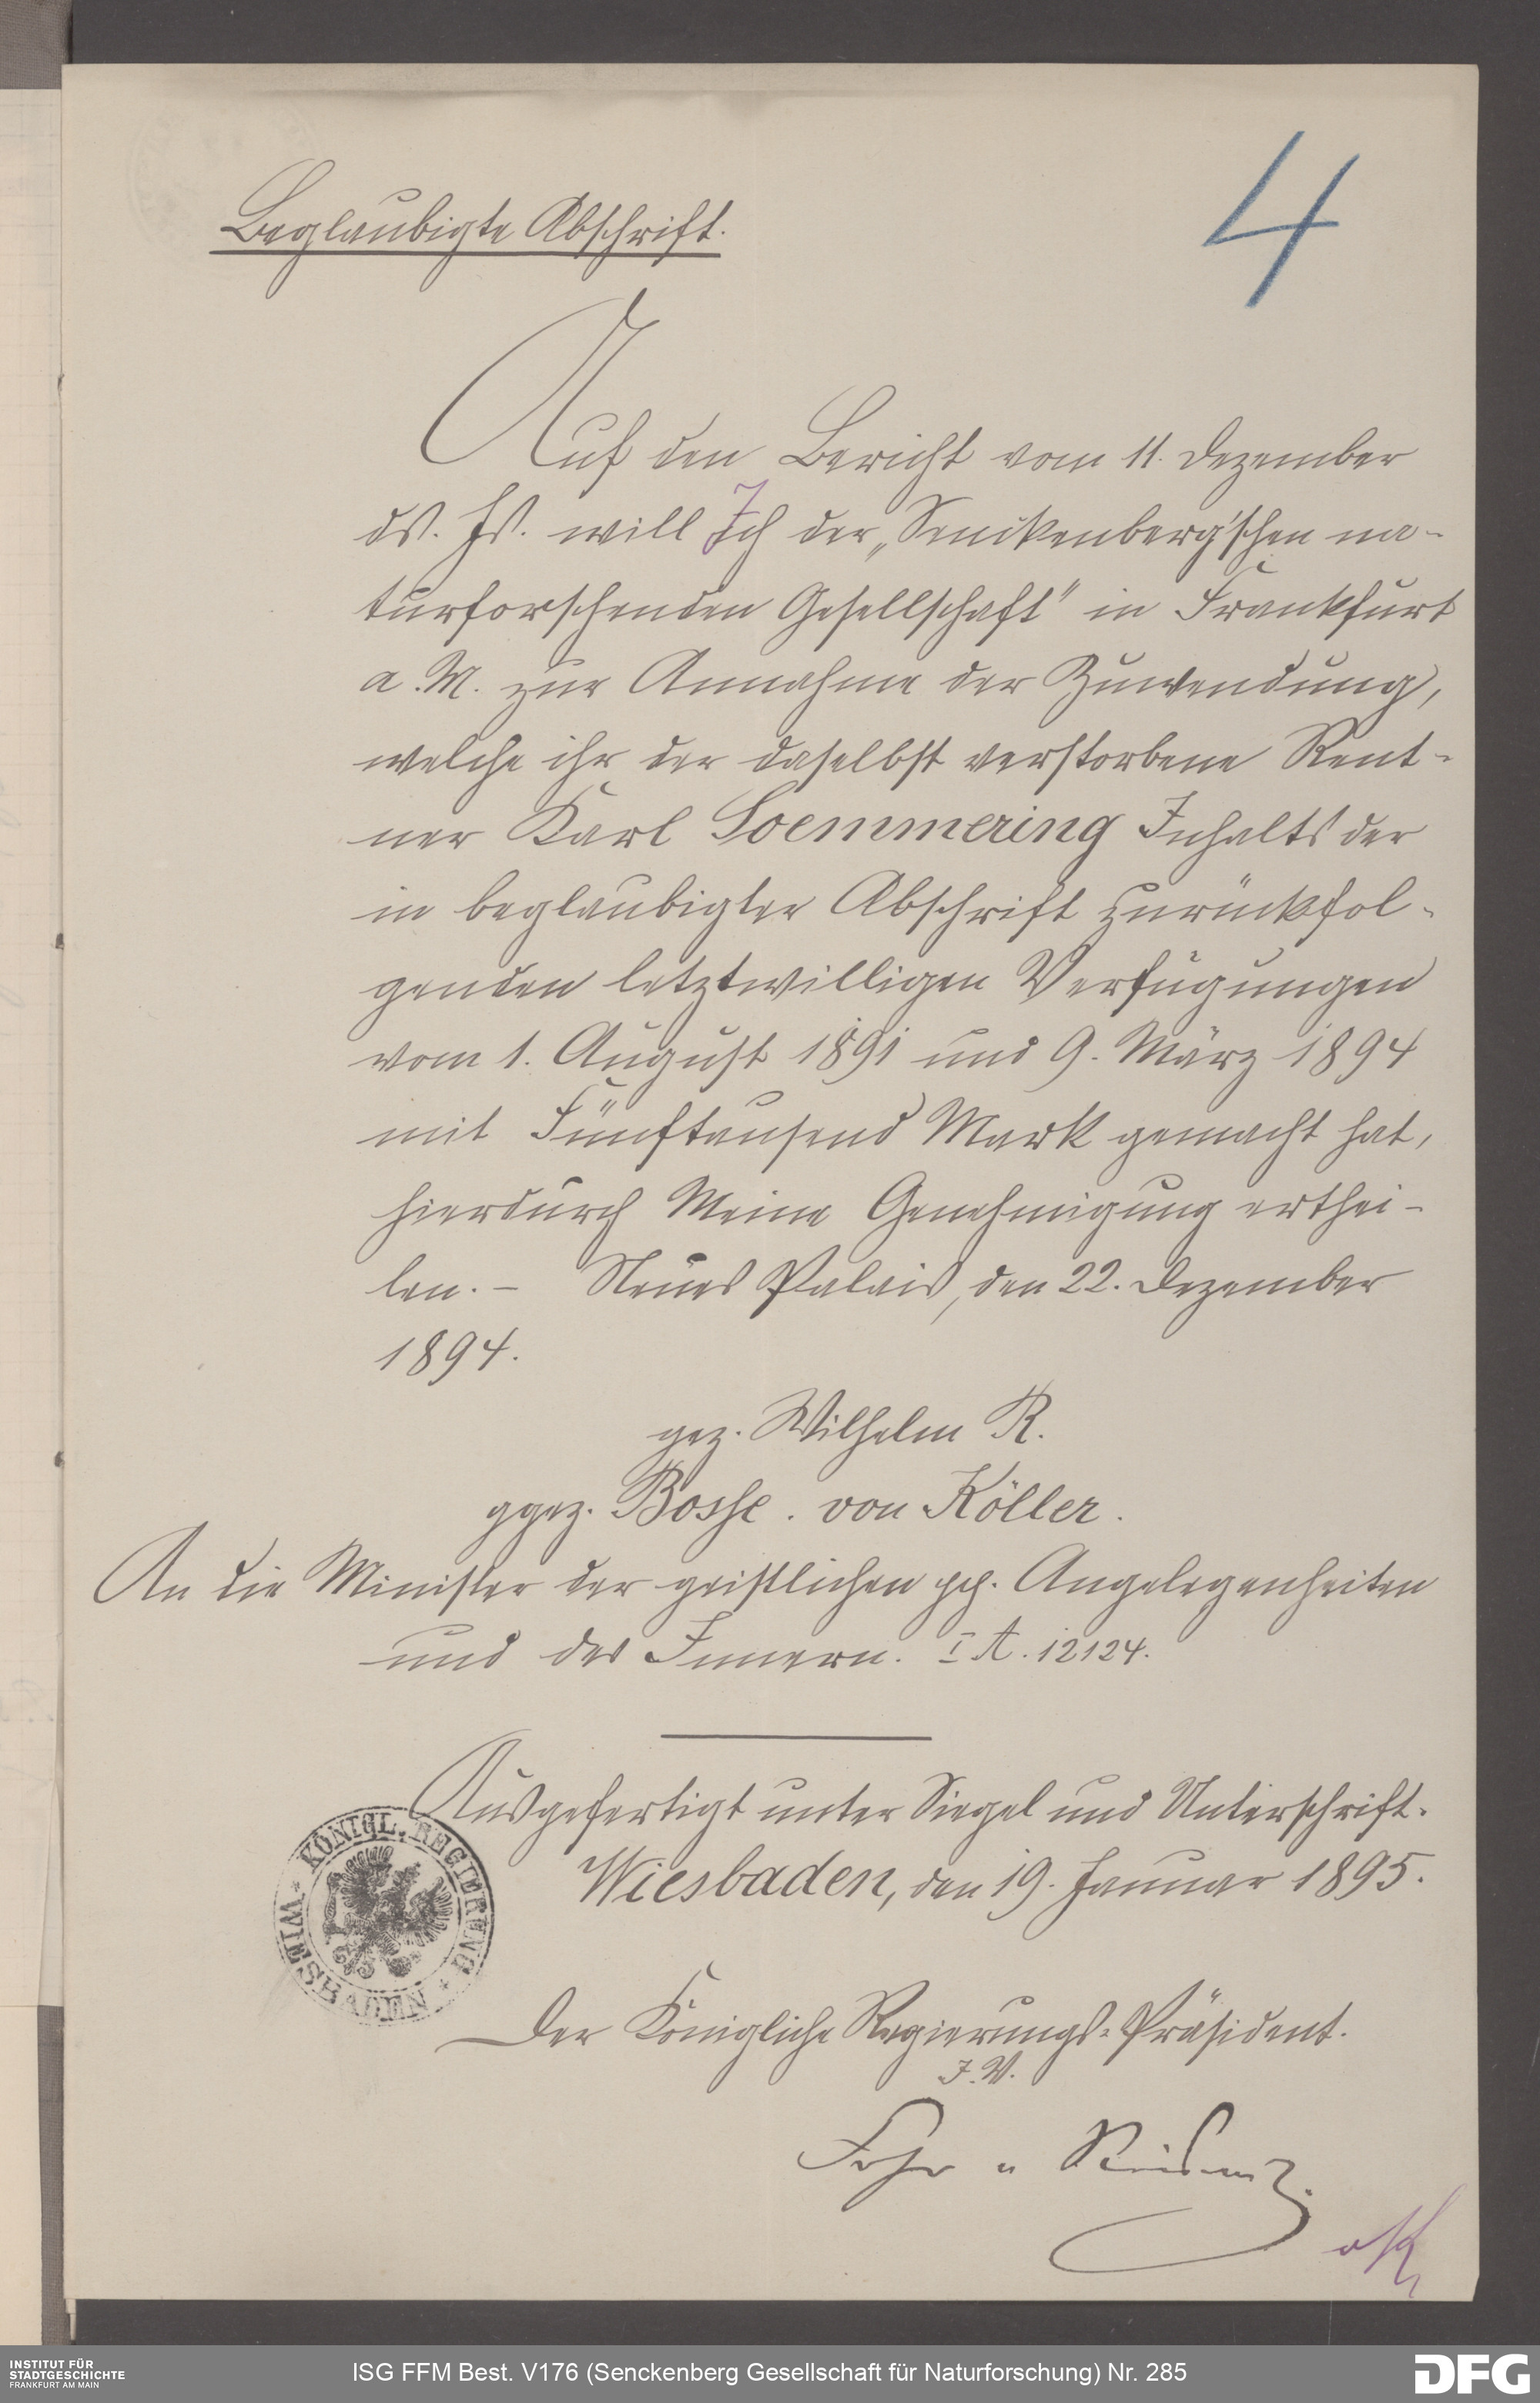 4
Beglaubigte Abschrift.
Auf den Bericht vom 11. Dezember
ds. Js. will Ich der „Senckenberg'schen na-
turforschenden Gesellschaft" in Frankfurt
a. M. zur Annahme der Zuwendung,
welche ihr der daselbst verstorbene Rent-
ner Karl Soemmering Inhalts der
in beglaubigter Abschrift zurückfol-
genden letztwilligen Verfügungen
vom 1. August 1891 und 9. März 1894
mit Fünftausend Mark gemacht hat,
hierdurch Meine Genehmigung erthei-
len. – Neues Palais, den 22. Dezember
1894.
gez. Wilhelm R.
ggez. Bosse. von Köller.
An die Minister der geistlichen pp. Angelegenheiten
und des Innern. I A. 12124.
Ausgefertigt unter Siegel und Unterschrift.
Wiesbaden, den 19. Januar 1895.
KÖNIGL. REGIERUNG * WIESBADEN *
Der Königliche Regierungs-Präsident.
I. V.
Frhr v
INSTITUT FÜR
STADTGESCHICHTE
FRANKFURT AM MAIN
ISG FFM Best. V176 (Senckenberg Gesellschaft für Naturforschung) Nr. 285
DFG